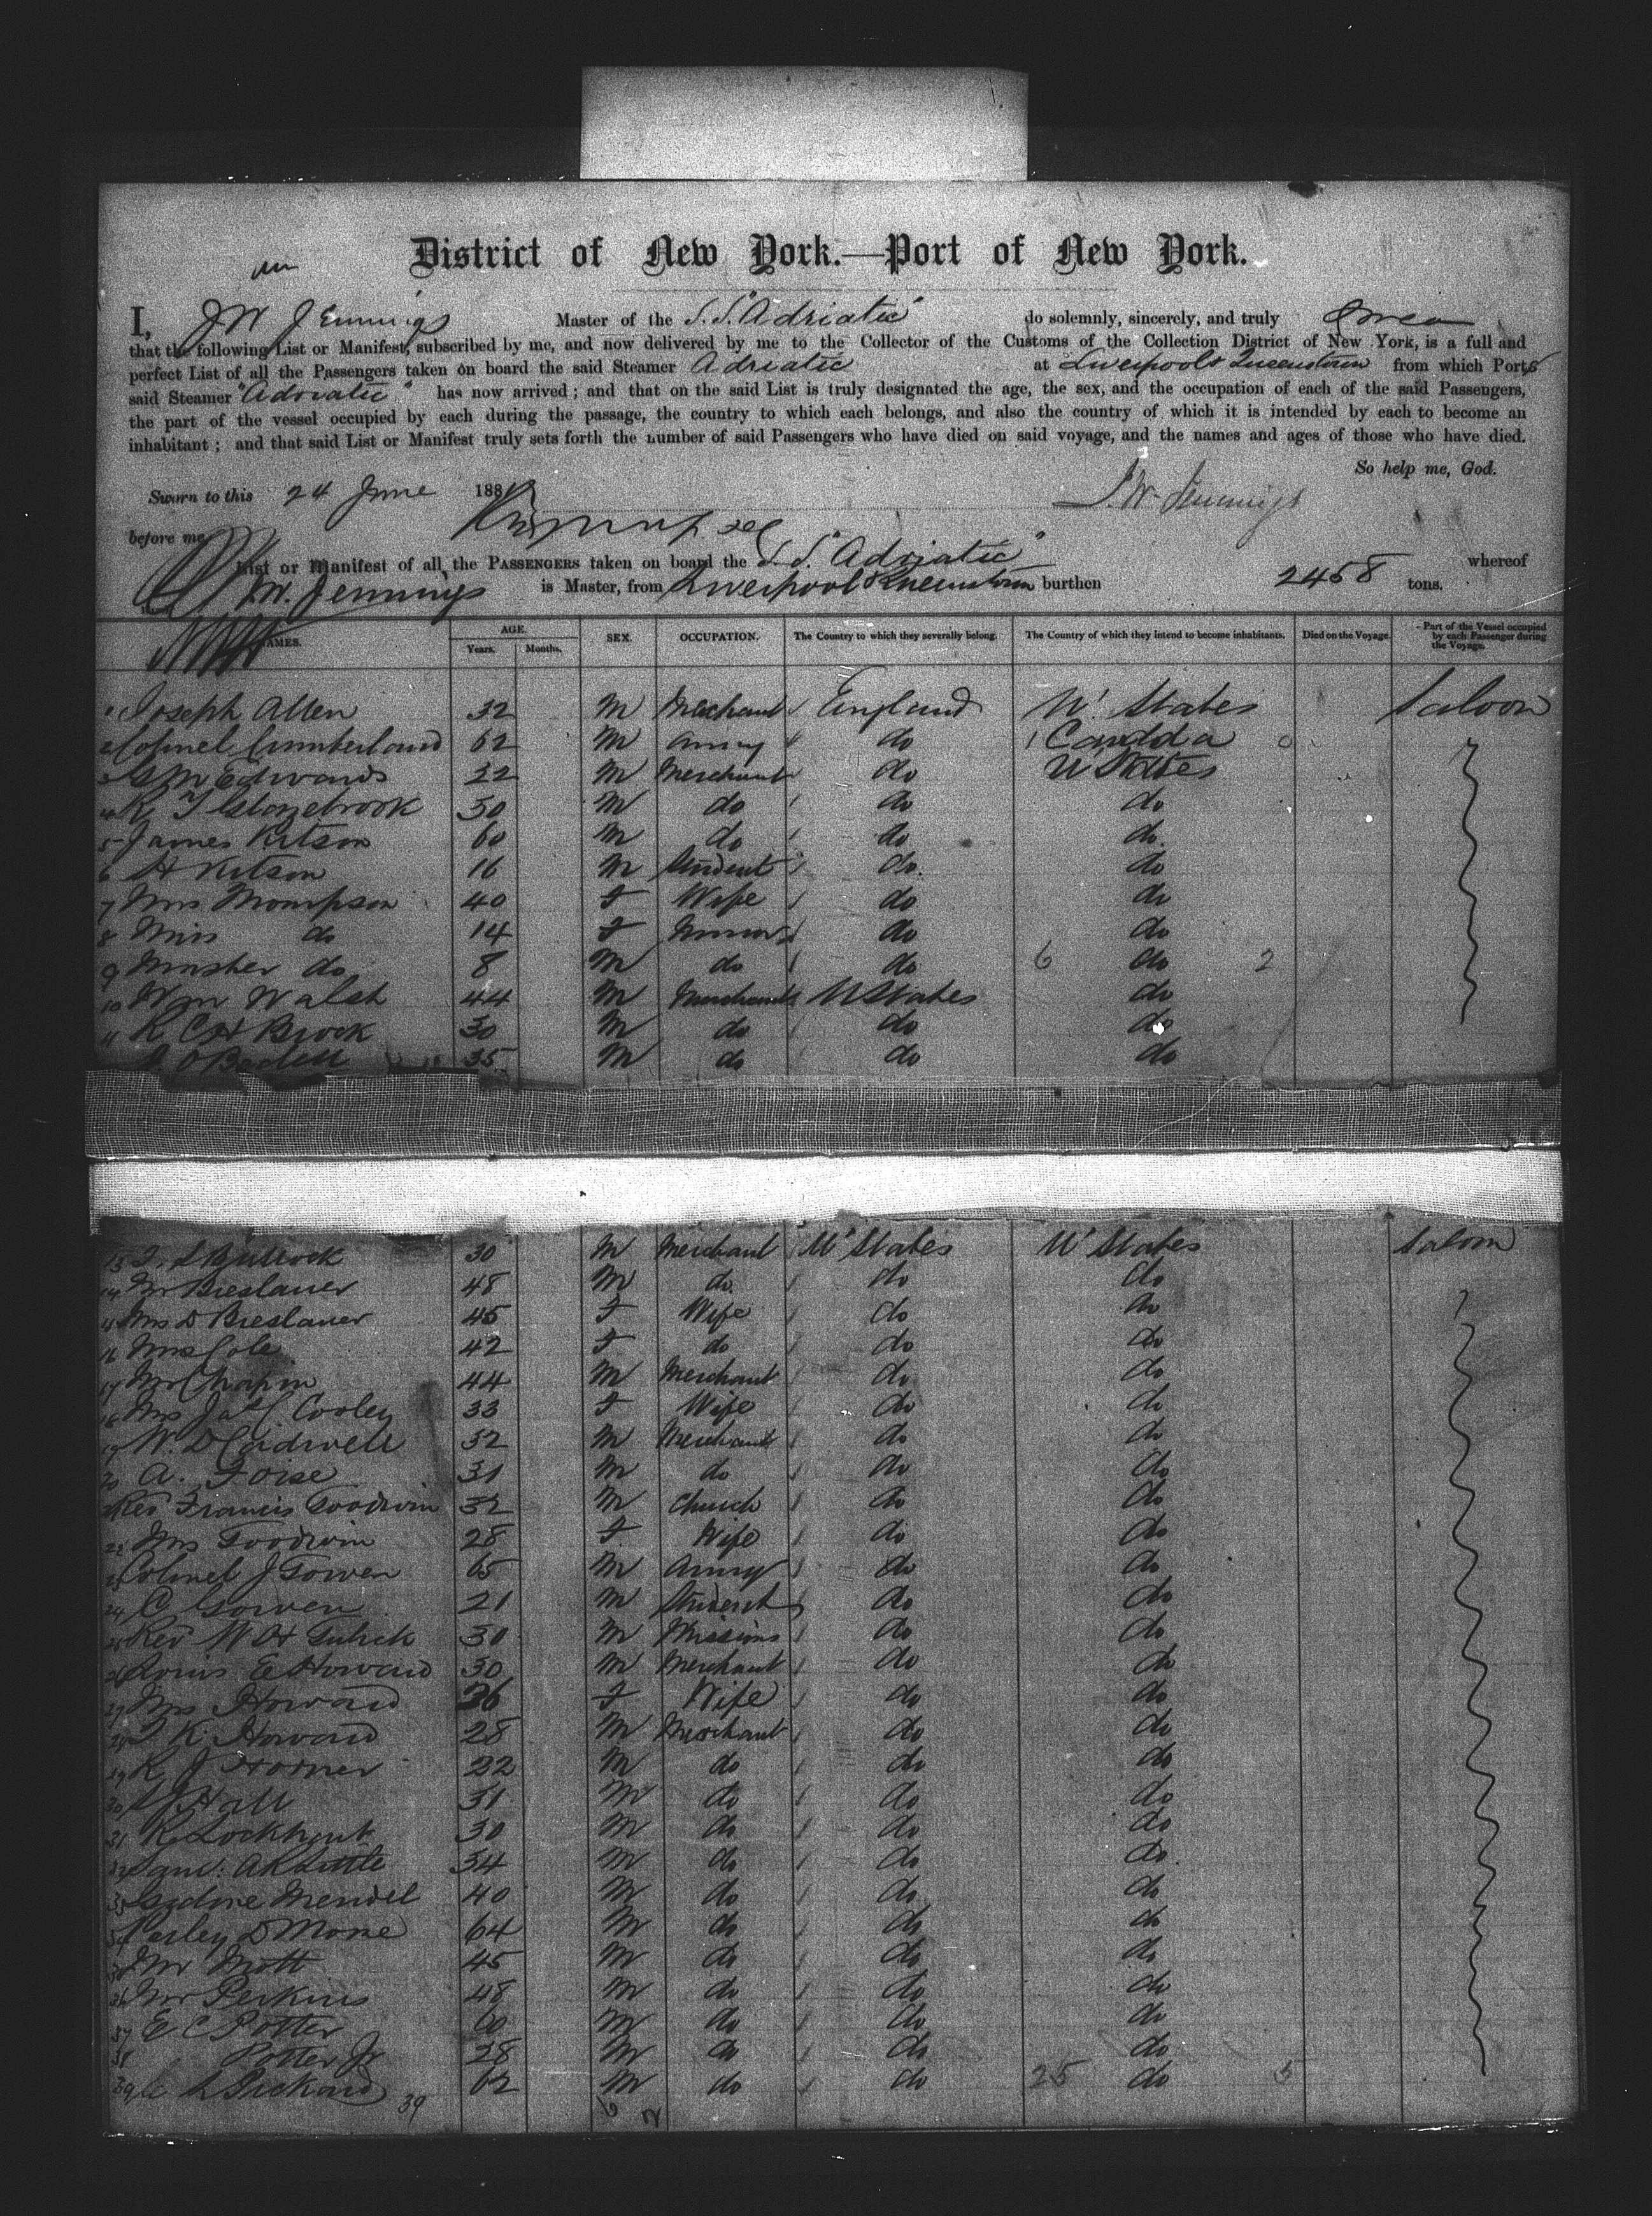 District of New York.—Port of New York.
I, J W Jennings Master of the S.S. "Adriatic" do solemnly, sincerely, and truly Swear
that the following List or Manifest, subscribed by me, and now delivered by me to the Collector of the Customs of the Collection District of New York, is a full and
perfect List of all the Passengers taken on board the said Steamer Adriatic at Liverpool & Queenstown from which Ports
said Steamer "Adriatic" has now arrived; and that on the said List is truly designated the age, the sex, and the occupation of each of the said Passengers,
the part of the vessel occupied by each during the passage, the country to which each belongs, and also the country of which it is intended by each to become an
inhabitant; and that said List or Manifest truly sets forth the number of said Passengers who have died on said voyage, and the names and ages of those who have died.
So help me, God.
Sworn to this 24 June 188 J. W. Jennings
before me
List or Manifest of all the PASSENGERS taken on board the S.S. "Adriatic" whereof
J W. Jennings is Master, from Liverpool & Queenstown burthen 2458 tons.
NAMES. AGE. Years. Months. SEX. OCCUPATION. The Country to which they severally belong. The Country of which they intend to become inhabitants. Died on the Voyage. Part of the Vessel occupied by each Passenger during the Voyage.
1 Joseph Allen 32 M Merchant England U' States Saloon
2 Colonel Cumberland 62 M Army do 1 Canada
3 G M Edwards 22 M Merchant do U States
4 R T Glazebrook 30 M do do do
5 James Kitson 60 M do do do
6 H Kitson 16 M Student do do
7 Mrs Thompson 40 F Wife do do
8 Miss do 14 F Minor do do
9 Master do 8 M do do 6 do 2
10 Wm Walsh 44 M Merchant U States do
11 R C H Brock 30 M do do do
35 M do do do
13 Bullock 30 M Merchant U' States U' States Saloon
14 Mr Breslauer 48 M do do do
15 Mrs D Breslauer 45 F Wife do do
16 Mrs Cole 42 F do do do
17 Mr Chapin 44 M Merchant do do
18 Mrs Jas C Cooley 33 F Wife do do
19 W. D Cadwell 32 M Merchant do do
20 A. Foise 31 M do do do
21 Rev Francis Goodwin 32 M Church do do
22 Mrs Goodwin 28 F Wife do do
23 Colonel J Gowen 65 M Army do do
24 C Gowen 21 M Student do do
25 Rev W H Gulick 30 M Missions do do
26 Louis E Howard 30 M Merchant do do
27 Mrs Howard 36 F Wife do do
28 T K Howard 28 M Merchant do do
29 R J Horner 22 M do do do
30 Hall 31 M do do do
31 R Lockhart 30 M do do do
32 Saml. A K Little 34 M do do do
33 Isidore Mendel 40 M do do do
34 Parley D Mone 64 M do do do
35 Mr Mott 45 M do do do
36 Mr Perkins 48 M do do do
37 E C Potter 60 M do do do
38 Potter Jr 28 M do do do
39 C L Pickard 62 M do do 25 do 5
39